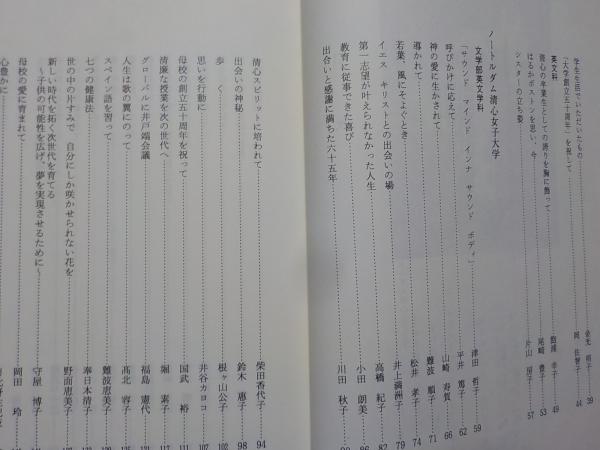 学生生活でいただいたもの……金光 明子 39
「大学創立五十周年」を祝して……岡 佐智子 44
英文科
清心の卒業生としての誇りを胸に飾って……飽浦 幸子 49
はるかボストンを思い、今……尾崎 豊子 53
シスターの立ち姿……片山 房子 57
ノートルダム清心女子大学
文学部英文学科
「サウンド マインド インナ サウンド ボディ」……津田 哲子 59
呼びかけに応えて……平井 篤子 62
神の愛に生かされて……山崎 寿賀 66
導かれて……難波 順子 71
若葉、風にそよぐとき……松井 孝子 74
イエス キリストとの出会いの場……井上満洲子 79
第一志望が叶えられなかった人生……高橋 紀子 82
教育に従事できた喜び……小田 朗美 86
出合いと感謝に満ちた六十五年……川田 秋子
清心スピリットに培われて……柴田香代子 94
出会いの神秘……鈴木 惠子 98
歩く……根ヶ山公子 102
思いを行動に……井谷カヨコ 107
母校の創立五十周年を祝って……国武 裕 111
清廉な授業を次の世代へ……堀 素子 117
グローバルに井戸端会議……福島 憲代 121
人生は歌の翼にのって……高北 容子
スペイン語を習って……難波恵美子
七つの健康法……奉日本清子
世の中の片すみで 自分にしか咲かせられない花を……野面恵美子
新しい時代を拓く次世代を育てる
～子供の可能性を広げ、夢を実現させるために～……守屋 博子
母校の愛に育まれて……岡田 玲
心豊かに